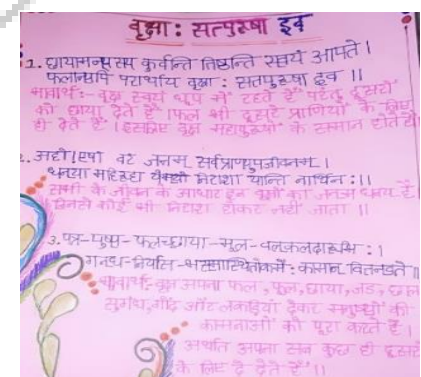 वृक्षा : सत्पुरुषा इव
1. छायामन्यस्य कुर्वन्ति तिष्ठन्ति स्वयं आपते ।
फलान्यपि परार्थाय वृक्षा : सतपुरुषा इव ।।
भावार्थ:- वृक्ष स्वयं धूप में रहते हैं परंतु दूसरों
को छाया देते हैं । फल भी दूसरे प्राणियों के लिए
ही देते हैं । इसलिए वृक्ष महापुरुषों के सम्मान होते हैं
2. अहो! एषां वर जनम सर्वप्राण्युपजीवनम् ।
धन्या महिरूहा येभ्यो निराशा यान्ति नार्थिन : ।।
सभी के जीवन के आधार इन वृक्षों का जनम धन्य है
जिनसे कोई भी निराश होकर नहीं जाता ।।
3. पत्र-पुष्प-फलच्छाया-मूल-वलकलदारूभि : ।
गनध-निर्यास-भस्मास्थितोकमै: कामान वितनवते ।।
भावार्थ:- वृक्ष अपना फल, फूल, छाया, जड़, छाल
सुगंध, गोंद और लकड़ियाँ देकर मनुष्यों की
कामनाओं को पूरा करते हैं ।
अर्थात अपना सब कुछ ही दूसरों
के लिए दे देते हैं ।।